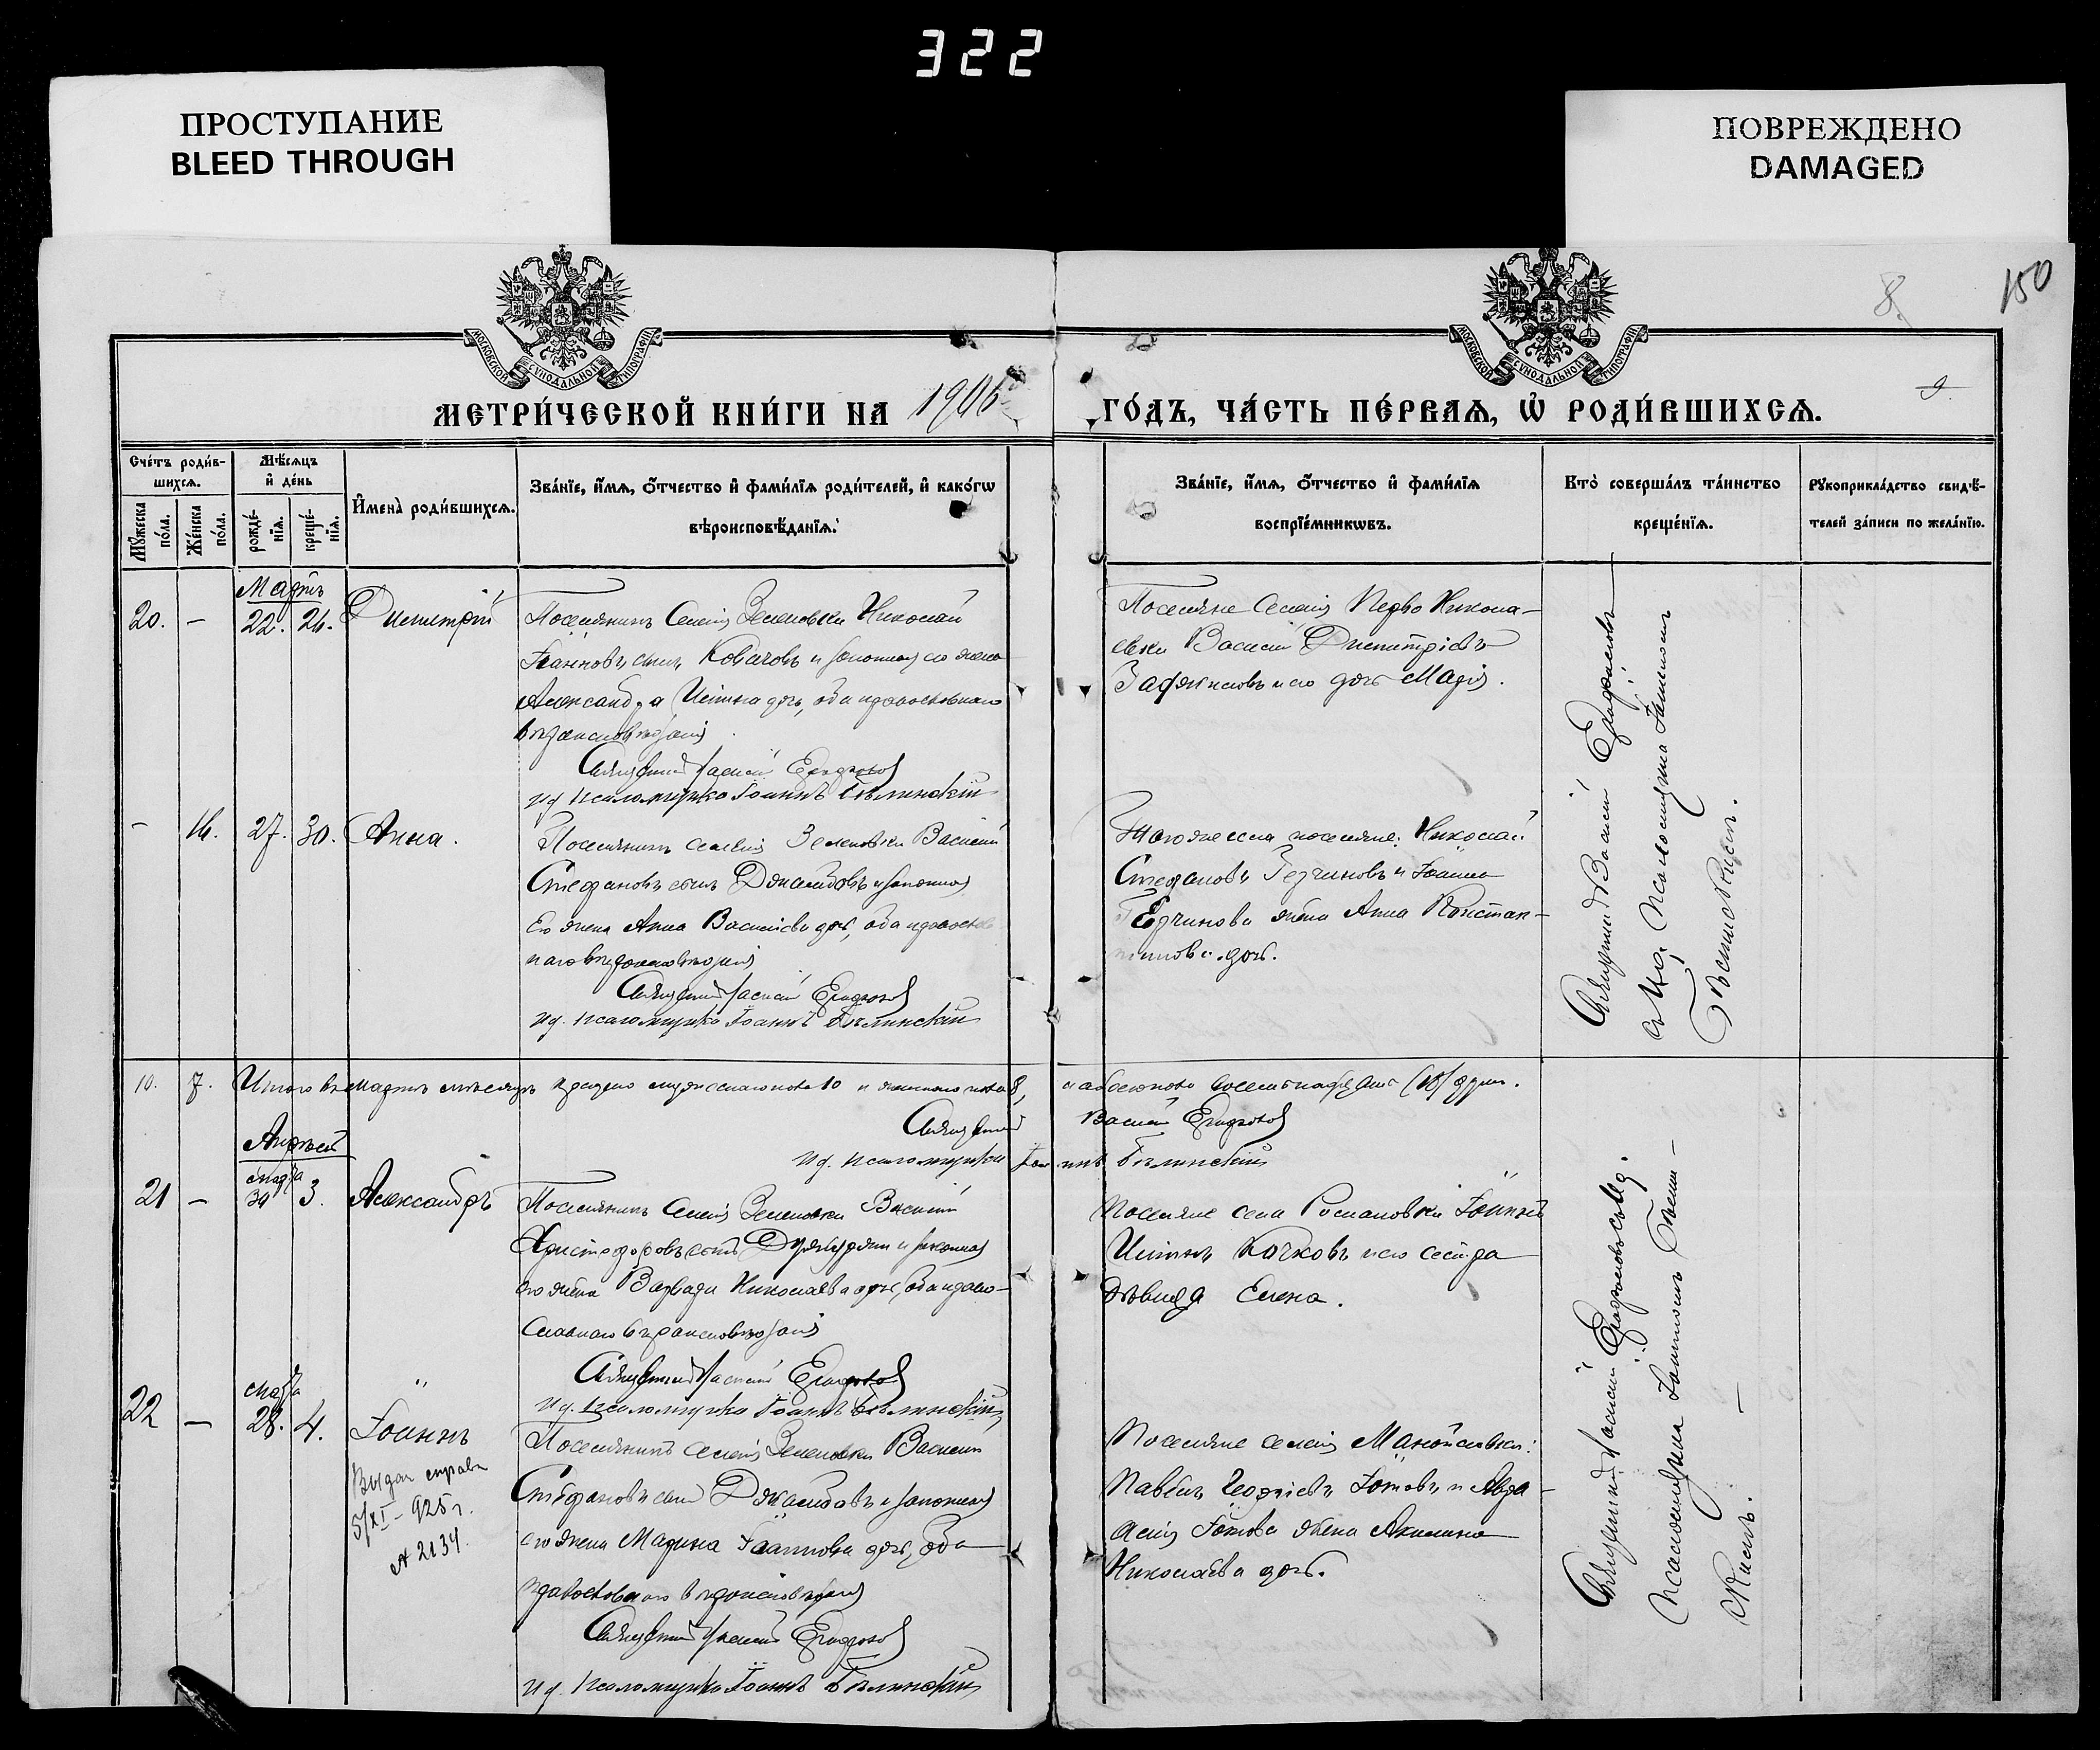 322
ПРОСТУПАНИЕ
BLEED THROUGH
ПОВРЕЖДЕНО
DAMAGED
150
8.
9.
МОСКОВСКОЙ СѴНОДАЛЬНОЙ ТИПОГРАФІИ
МОСКОВСКОЙ СѴНОДАЛЬНОЙ ТИПОГРАФІИ
МЕТРИ́ЧЕСКОЙ КНИ́ГИ НА 1906 ГО́ДЪ, ЧА́СТЬ ПЕ́РВАѦ, Ѽ РОДИ́ВШИХСѦ.
Сче́тъ роди́в-
шихсѧ.
Мꙋ́жеска по́ла.
Же́нска по́ла.
Мѣ́сѧцъ и҆ де́нь
рожде́-нїѧ.
креще́-нїѧ.
И҆мена̀ роди́вшихсѧ.
Зва́нїе, и҆́мѧ, ѻ҆́тчество и҆ фами́лїѧ роди́телей, и҆ како́гѡ
вѣроисповѣ́данїѧ.
Зва́нїе, и҆́мѧ, ѻ҆́тчество и҆ фами́лїѧ
воспрїе́мникѡвъ.
Кто̀ соверша́лъ та́инство
креще́нїѧ.
Рꙋкоприкла́дство свидѣ́-
телей за́писи по жела́нїю.
Мартъ
20. — 22. 26. Димитрій
Поселянинъ Селенія Зеленовки Николай
Іоанновъ сынъ Ковачовъ и законная его жена
Александра Ильина дочь, оба православнаго
вѣроисповѣданія
Священникъ Василій
ид. псаломщика Іоаннъ Бѣлинскій
Поселяне Селенія Перво Никола-
евки Василій Димитріевъ
и его дочь Марія.
Священникъ Василій
съ ид. Псаломщика Іоанномъ
Бѣлинскимъ.
— 16. 27. 30. Анна.
Поселянинъ селенія Зеленовки Василій
Стефановъ сынъ Джамбовъ и законная
Его жена Анна Васильева дочь, оба православ
наго вѣроисповѣданія
Священникъ Василій
ид. псаломщика Іоаннъ Бѣлинскій
Того же села поселяне: Николай
Стефановъ и Іоанна
жена Анна Констан-
тинова дочь.
10. 7. Итого въ Мартѣ мѣсяцѣ рождено мужескаго пола 10 и женскаго пола 8, а обоего пола восемнадцать (18) душъ.
Священникъ Василій
ид. псаломщика Іоаннъ Бѣлинскій
Апрѣль
марта
21 — 30 3. Александръ
Поселянинъ Селенія Зеленовки Василій
Христофоровъ сынъ и законная
его жена Варвара Николаева дочь, оба право-
славнаго вѣроисповѣданія
Священникъ Василій
ид. псаломщика Іоаннъ Бѣлинскій
Поселяне села Романовки Іоаннъ
Ильинъ Кочковъ и его сестра
дѣвица Елена.
Священникъ Василій съ ид.
псаломщика Іоанномъ Бѣлин—
скимъ.
марта
22 — 28. 4. Іоаннъ
Выдан справк
5/XI - 925 г.
№ 2134.
Поселянинъ селенія Зеленовки Василій
Стефановъ сынъ Джамбовъ и законная
его жена Марина Іоаннова дочь, оба
православнаго вѣроисповѣданія
Священникъ Василій
ид. Псаломщика Іоаннъ Бѣлинскій
Поселяне селенія Манойловки:
Павелъ Георгіевъ и
жена Акилина
Николаева дочь.